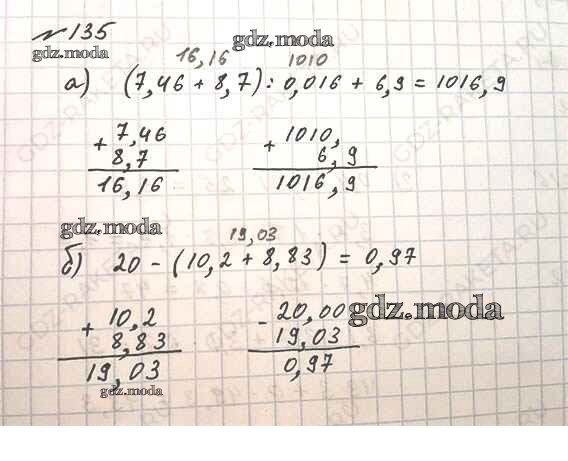 № 135
gdz.moda
gdz.moda
16,16 1010
а) (7,46 + 8,7) : 0,016 + 6,9 = 1016,9
+ 7,46
8,7
16,16
+ 1010,
6,9
1016,9
gdz.moda
19,03
б) 20 - (10,2 + 8,83) = 0,97
+ 10,2
8,83
19,03
gdz.moda
- 20,00
19,03
0,97
gdz.moda